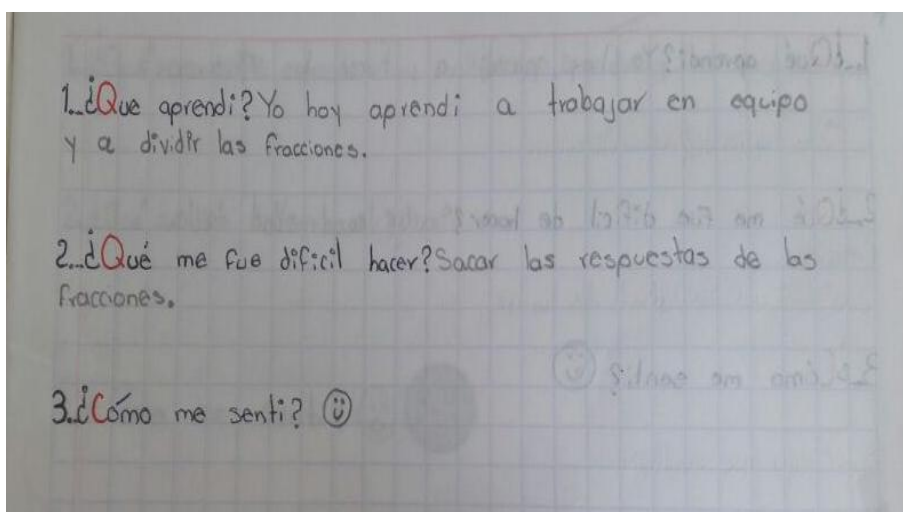 1..¿Que aprendi? Yo hoy aprendi a trabajar en equipo
y a dividir las fracciones.
2..¿Qué me fue dificil hacer? Sacar las respuestas de las
fracciones.
3.¿Cómo me senti? ☺